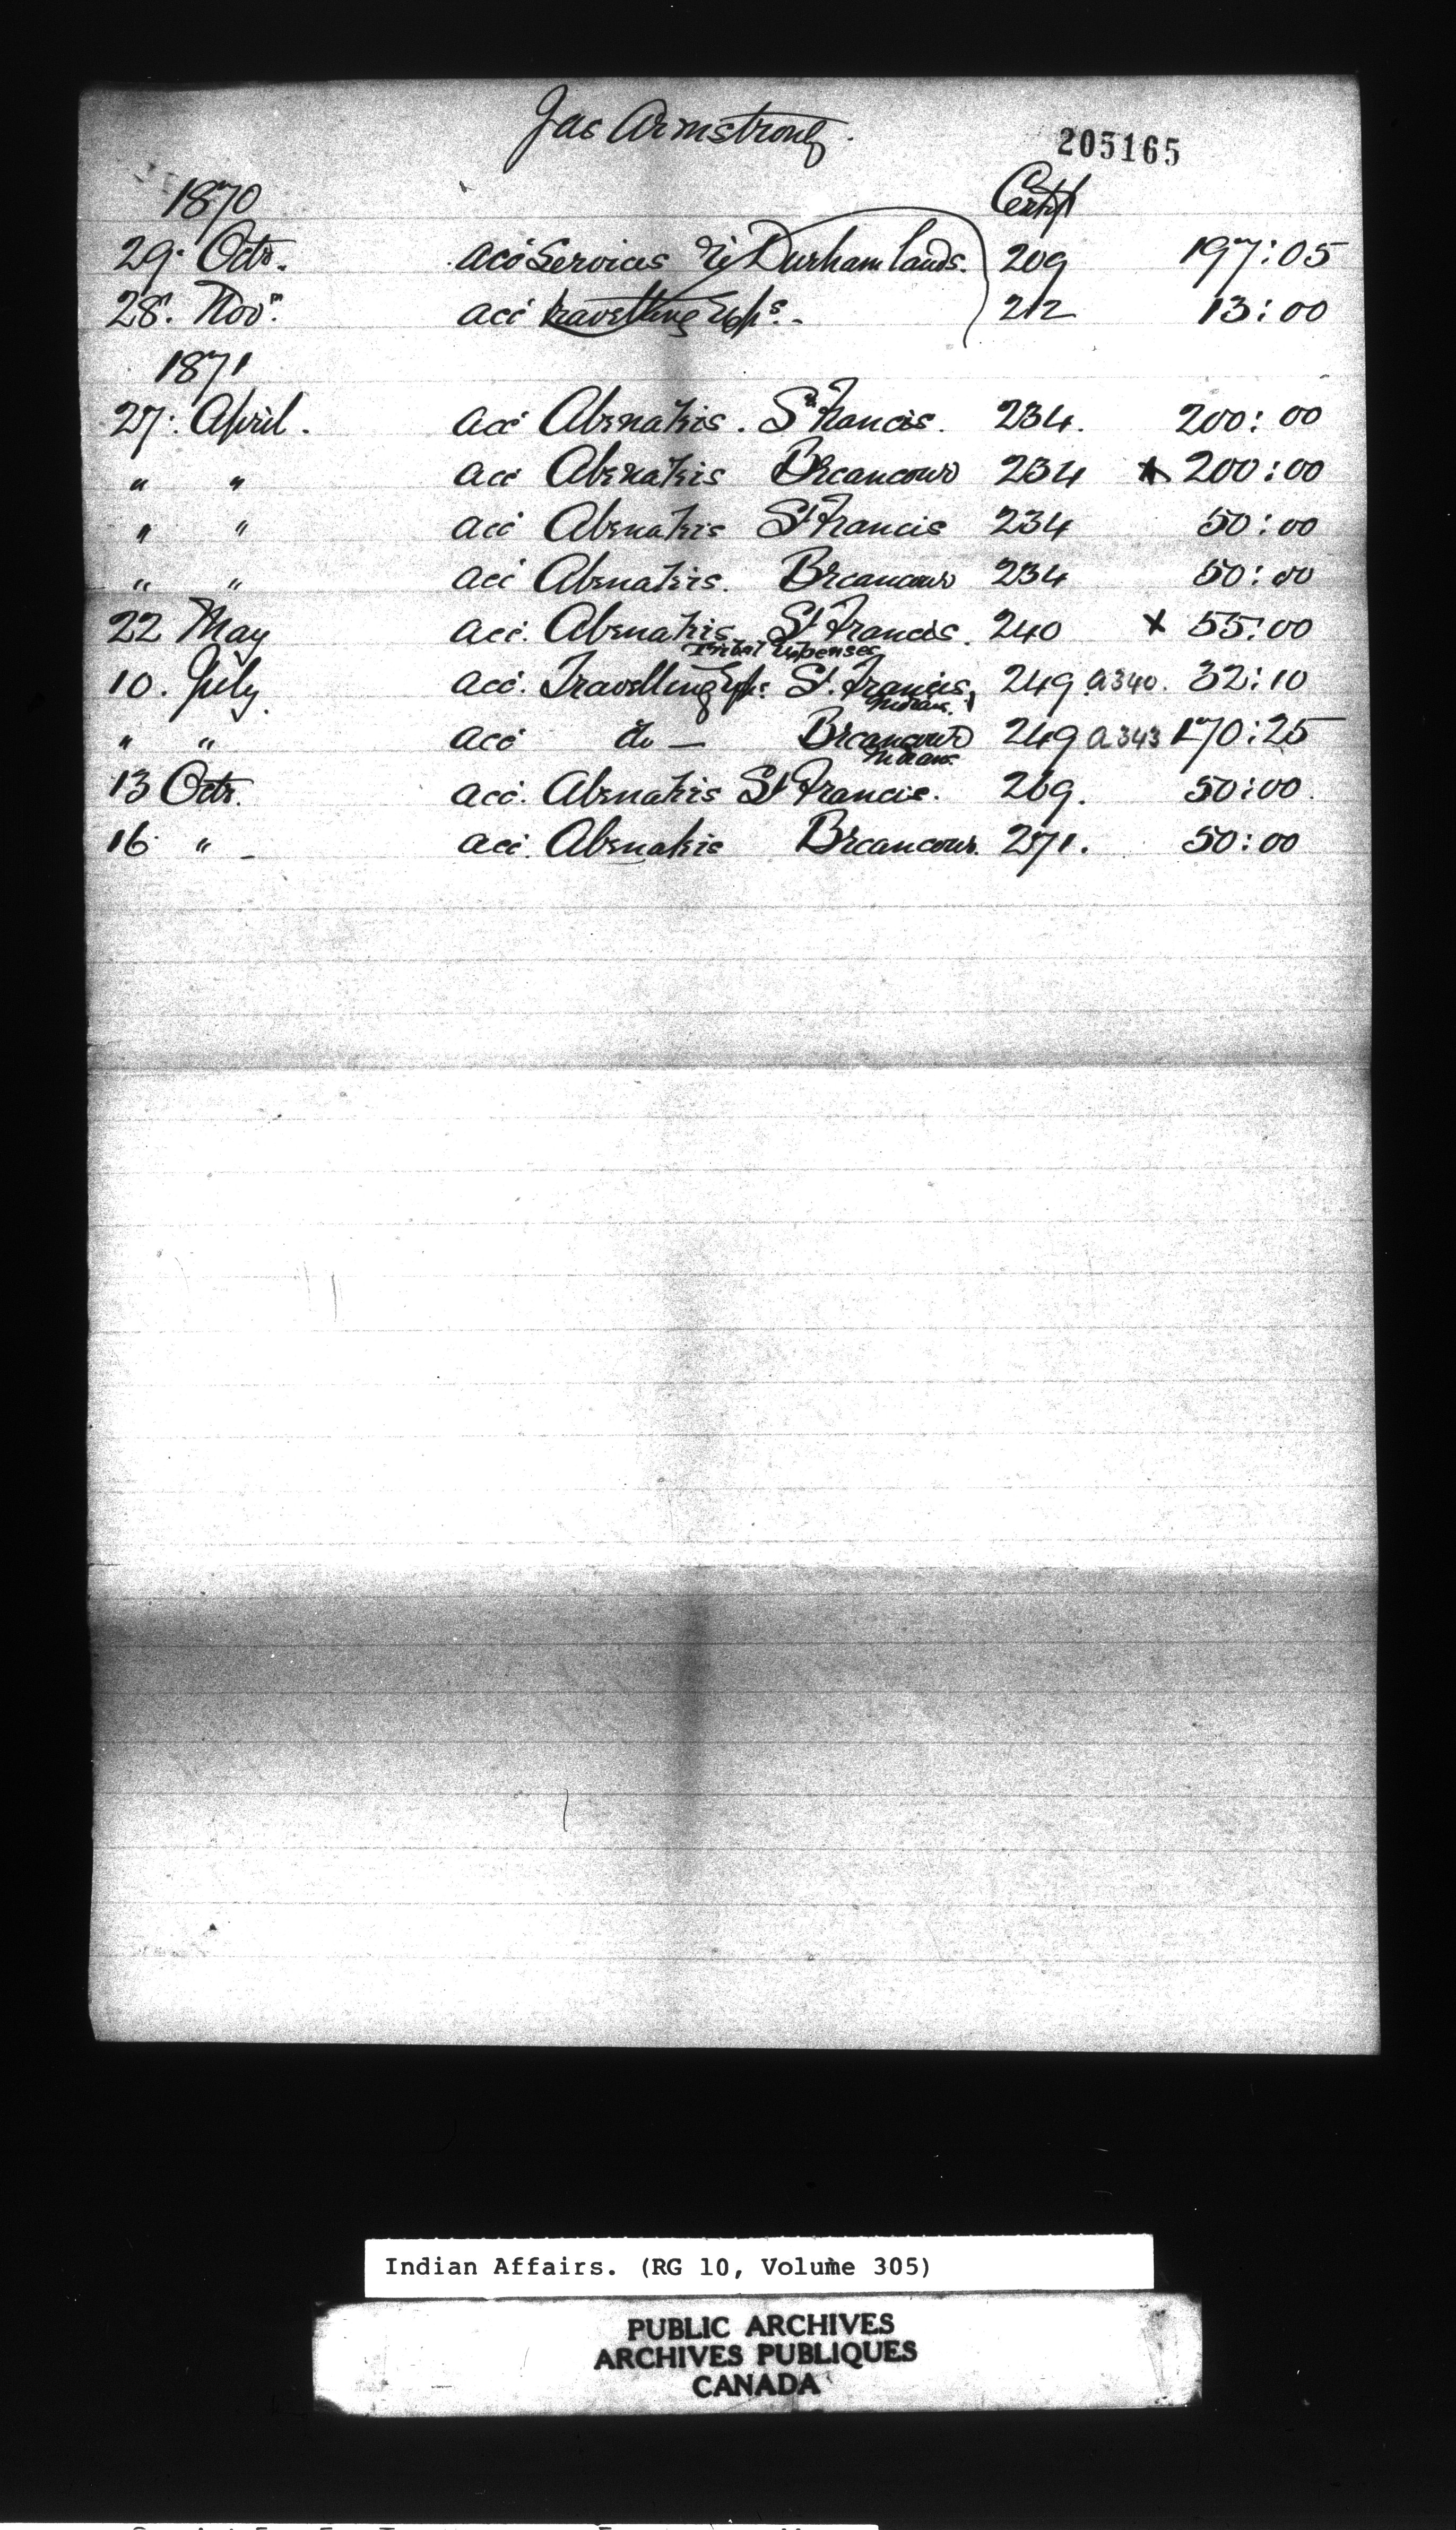 Jas Armstrong.
205165
1870 Certif
29. Octr. acc Services re Durham lands. 209 197:05
28. Novr. acc travelling Exps. - 212 13:00
1871
27. April. acc Abenakis. St Francis. 234. 200:00
" " acc Abenakis Becancour 234 x 200:00
" " acc Abenakis St Francis 234 50:00
" " acc Abenakis. Becancour 234 50:00
22 May acc. Abenakis St Francis. 240 x 55:00
Tribal Expenses
10. July acc. Travelling Exps. St. Francis, 249 a340. 32:10
Indians.
" " acc do — Becancour 249 a343 170:25
Indians
13 Octr. acc. Abenakis St Francis. 269. 50:00.
16 " - acc. Abenakis Becancour. 271. 50:00
Indian Affairs. (RG 10, Volume 305)
PUBLIC ARCHIVES
ARCHIVES PUBLIQUES
CANADA